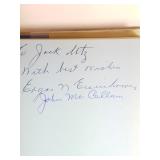 To Jack Utz
With best wishes
Edgar N Eisenhower
John McCallum